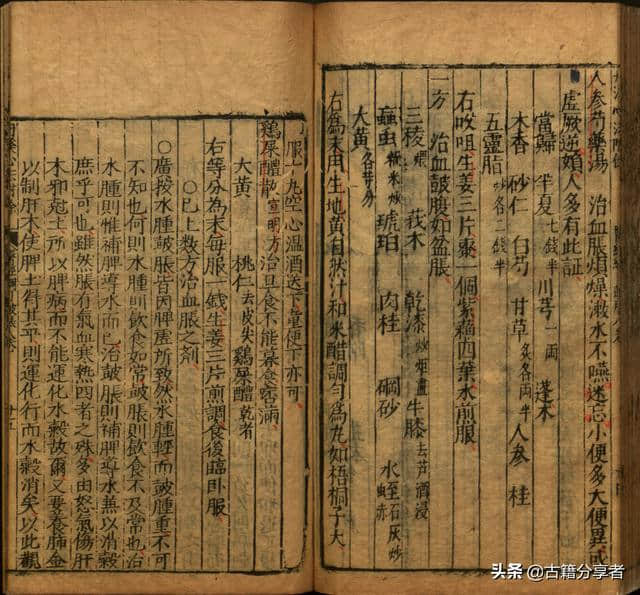 人參芍藥湯 治血脹煩燥漱水不嚥迷忘小便多大便異或
虛厥逆婦人多有此証
當歸 半夏七錢半 川芎一兩 蓬朮
木香 砂仁 白芍 甘草炙各兩半 人參 桂
五靈脂炒各二錢半
右㕮咀生姜三片棗一個紫蘇四葉水煎服
一方 治血鼓腹如盆脹
三稜煨 莪朮 乾漆炒烟盡 牛膝去芦酒浸
蝱虫糯米炒 琥珀 肉桂 硇砂 水蛭石灰炒赤
大黃各等分
右為末用生地黃自然汁和米醋調勻為丸如梧桐子大
服十丸空心溫酒送下童便下亦可
鷄屎醴散宣明方治旦食不能暮食痞滿
大黃 桃仁去皮尖 鷄屎醴乾者
右等分為末每服一錢生姜三片煎調食後臨卧服
○已上數方治血脹之劑
○廣按水腫皷脹皆因脾虛所致然水腫輕而皷腫重不可
不知也何則水腫則飲食如常皷脹則飲食不及常也治
水腫則惟補脾導水而已治皷脹則補脾導水兼以消穀
庶乎可也雖然脹有氣血寒熱四者之殊多由怒氣傷肝
木邪剋土所以脾病而不能運化水穀故爾又要養肺金
以制肝木使脾土得其平則運化行而水穀消矣以此觀
廿五
头条 @古籍分享者